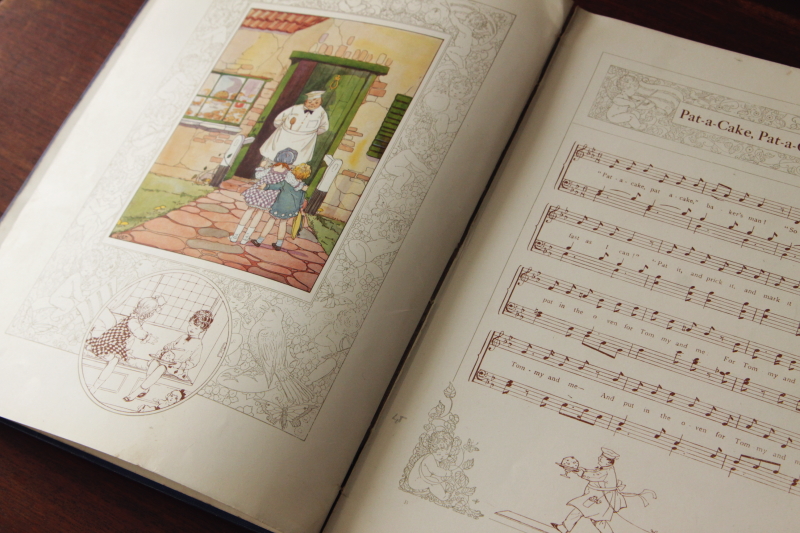 Pat-a-Cake, Pat-a-C
"Pat - a - cake, pat - a - cake," ba - ker's man! "So
fast as I can!" "Pat it, and prick it, and mark it
put in the o - ven for Tom my and me For Tom my and
Tom - my and me— And put in the o - ven for Tom my and